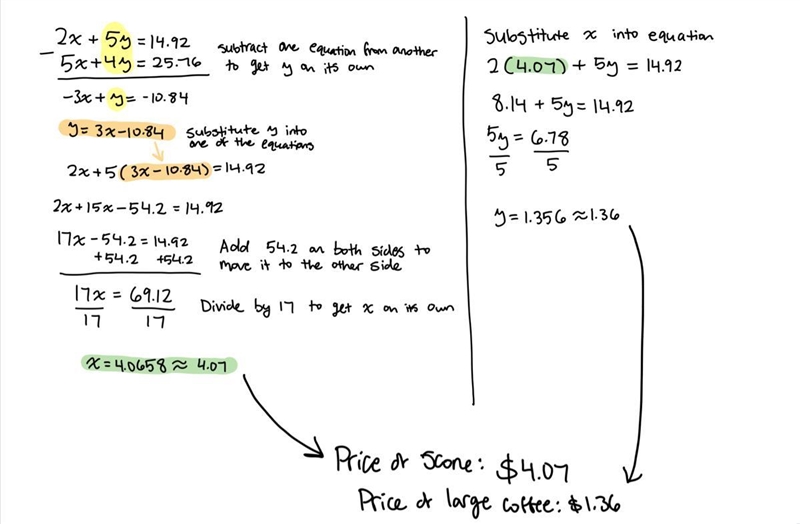 2x + 5y = 14.92
− 5x + 4y = 25.76
subtract one equation from another
to get y on its own
-3x + y = -10.84
y = 3x - 10.84
substitute y into
one of the equations
2x + 5(3x - 10.84) = 14.92
2x + 15x - 54.2 = 14.92
17x - 54.2 = 14.92
+54.2 +54.2
Add 54.2 on both sides to
move it to the other side
17x = 69.12
17 17
Divide by 17 to get x on its own
x = 4.0658 ≈ 4.07
Substitute x into equation
2(4.07) + 5y = 14.92
8.14 + 5y = 14.92
5y = 6.78
5 5
y = 1.356 ≈ 1.36
Price of scone: $4.07
Price of large coffee: $1.36